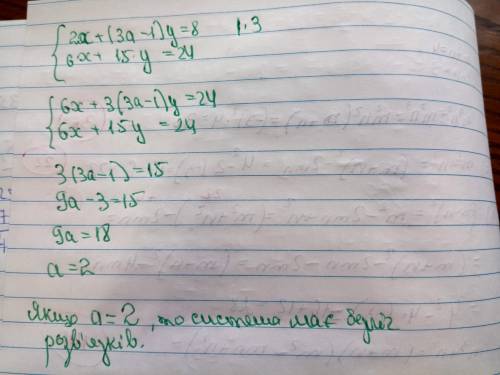 2x + (3a-1)y = 8 | · 3
6x + 15 · y = 24
6x + 3(3a-1)y = 24
6x + 15y = 24
3(3a-1) = 15
9a - 3 = 15
9a = 18
a = 2
Якщо a = 2, то система має безліч
розв'язків.